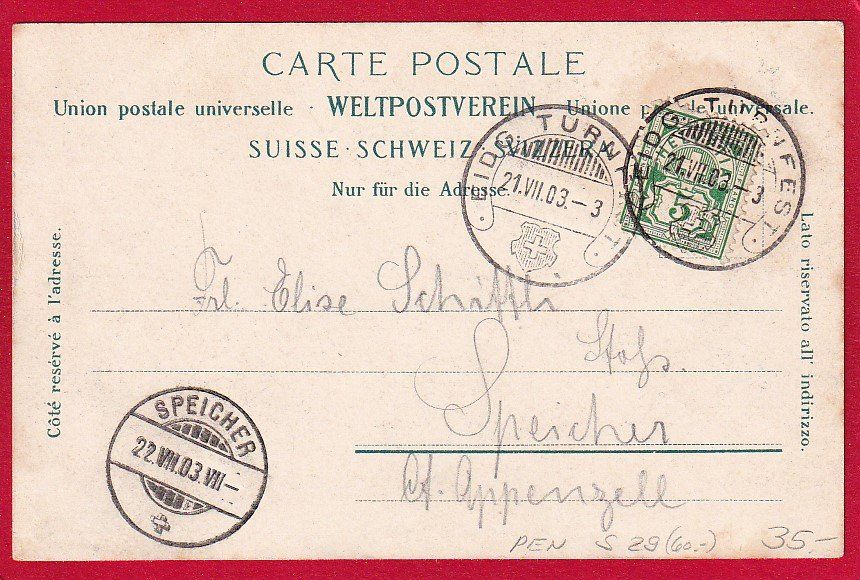 CARTE POSTALE
Union postale universelle · WELTPOSTVEREIN · Unione postale universale.
SUISSE · SCHWEIZ · SVIZZERA
Nur für die Adresse.
EIDG. TURNFEST
21.VII.03.–3
EIDG. TURNFEST
21.VII.03.–3
5
Côté reservé à l'adresse.
Lato riservato all' indirizzo.
Frl. Elise Schäffli
Speicher
Ct. Appenzell
SPEICHER
22.VII.03.VII–
PEN S 29 (60.-) 35.-